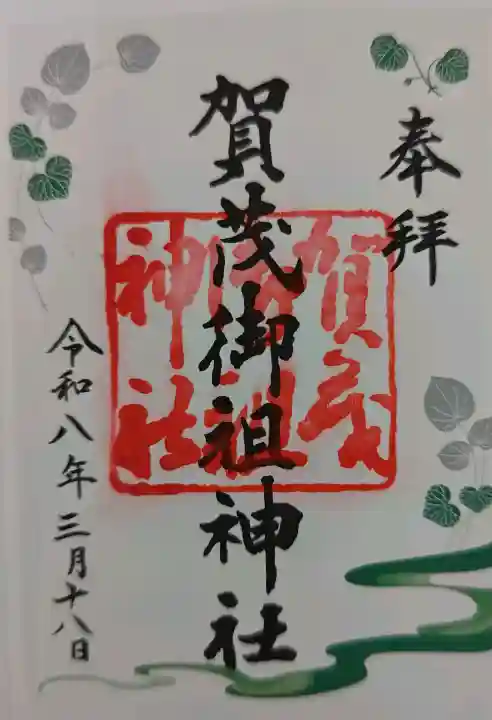 奉拝
賀茂御祖神社
賀茂
御祖
神社
令和八年三月十八日